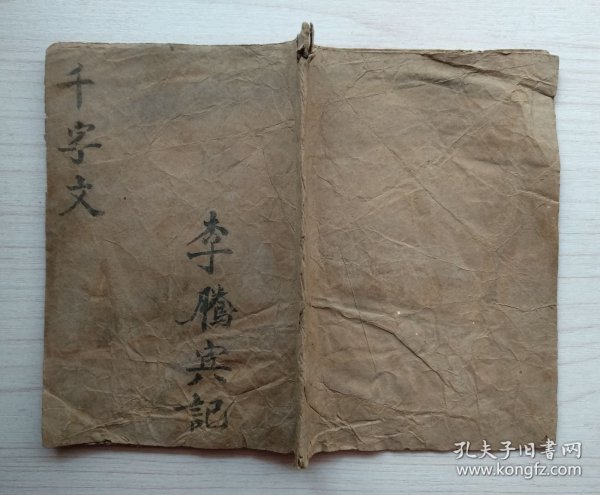 千字文
李騰宾記
孔夫子旧書网
www.kongfz.com